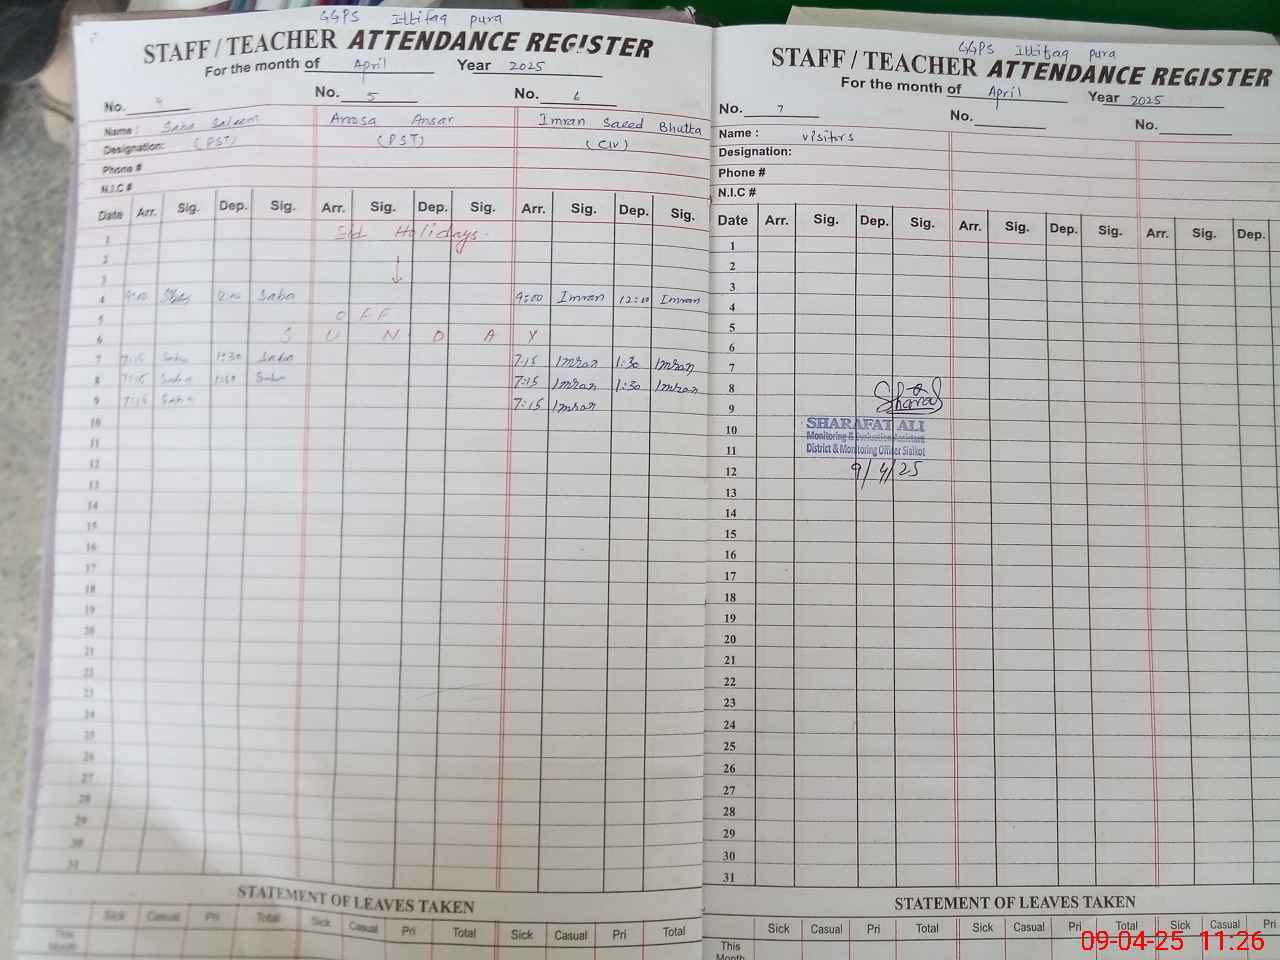 GGPS Ittifaq pura
STAFF / TEACHER ATTENDANCE REGISTER
For the month of April Year 2025
No. 4 No. 5 No. 6
Name : Saba Saleem Aroosa Ansar Imran Saeed Bhutta
Designation: (PST) (PST) (C IV)
Phone #
N.I.C #
Date Arr. Sig. Dep. Sig. Arr. Sig. Dep. Sig. Arr. Sig. Dep. Sig.
1 Eid Holidays.
2
3
4 9:00 Saba 12:00 Saba 9:00 Imran 12:10 Imran
5 OFF
6 S U N D A Y
7 7:15 Saba 1:30 Saba 7:15 Imran 1:30 Imran
8 7:15 Saba 1:30 Saba 7:15 Imran 1:30 Imran
9 7:15 Saba 7:15 Imran
10
11
12
13
14
15
16
17
18
19
20
21
22
23
24
25
26
27
28
29
30
31
STATEMENT OF LEAVES TAKEN
Sick Casual Pri Total Sick Casual Pri Total Sick Casual Pri Total
This Month
GGPS Ittifaq pura
STAFF / TEACHER ATTENDANCE REGISTER
For the month of April Year 2025
No. 7 No. No.
Name : visitors
Designation:
Phone #
N.I.C #
Date Arr. Sig. Dep. Sig. Arr. Sig. Dep. Sig. Arr. Sig. Dep.
1
2
3
4
5
6
7
8
9 Sharafat
10 SHARAFAT ALI
Monitoring & Evaluation Assistant
11 District & Monitoring Officer Sialkot
12 9/4/25
13
14
15
16
17
18
19
20
21
22
23
24
25
26
27
28
29
30
31
STATEMENT OF LEAVES TAKEN
Sick Casual Pri Total Sick Casual Pri Total Sick Casual Pri
This Month
09-04-25 11:26